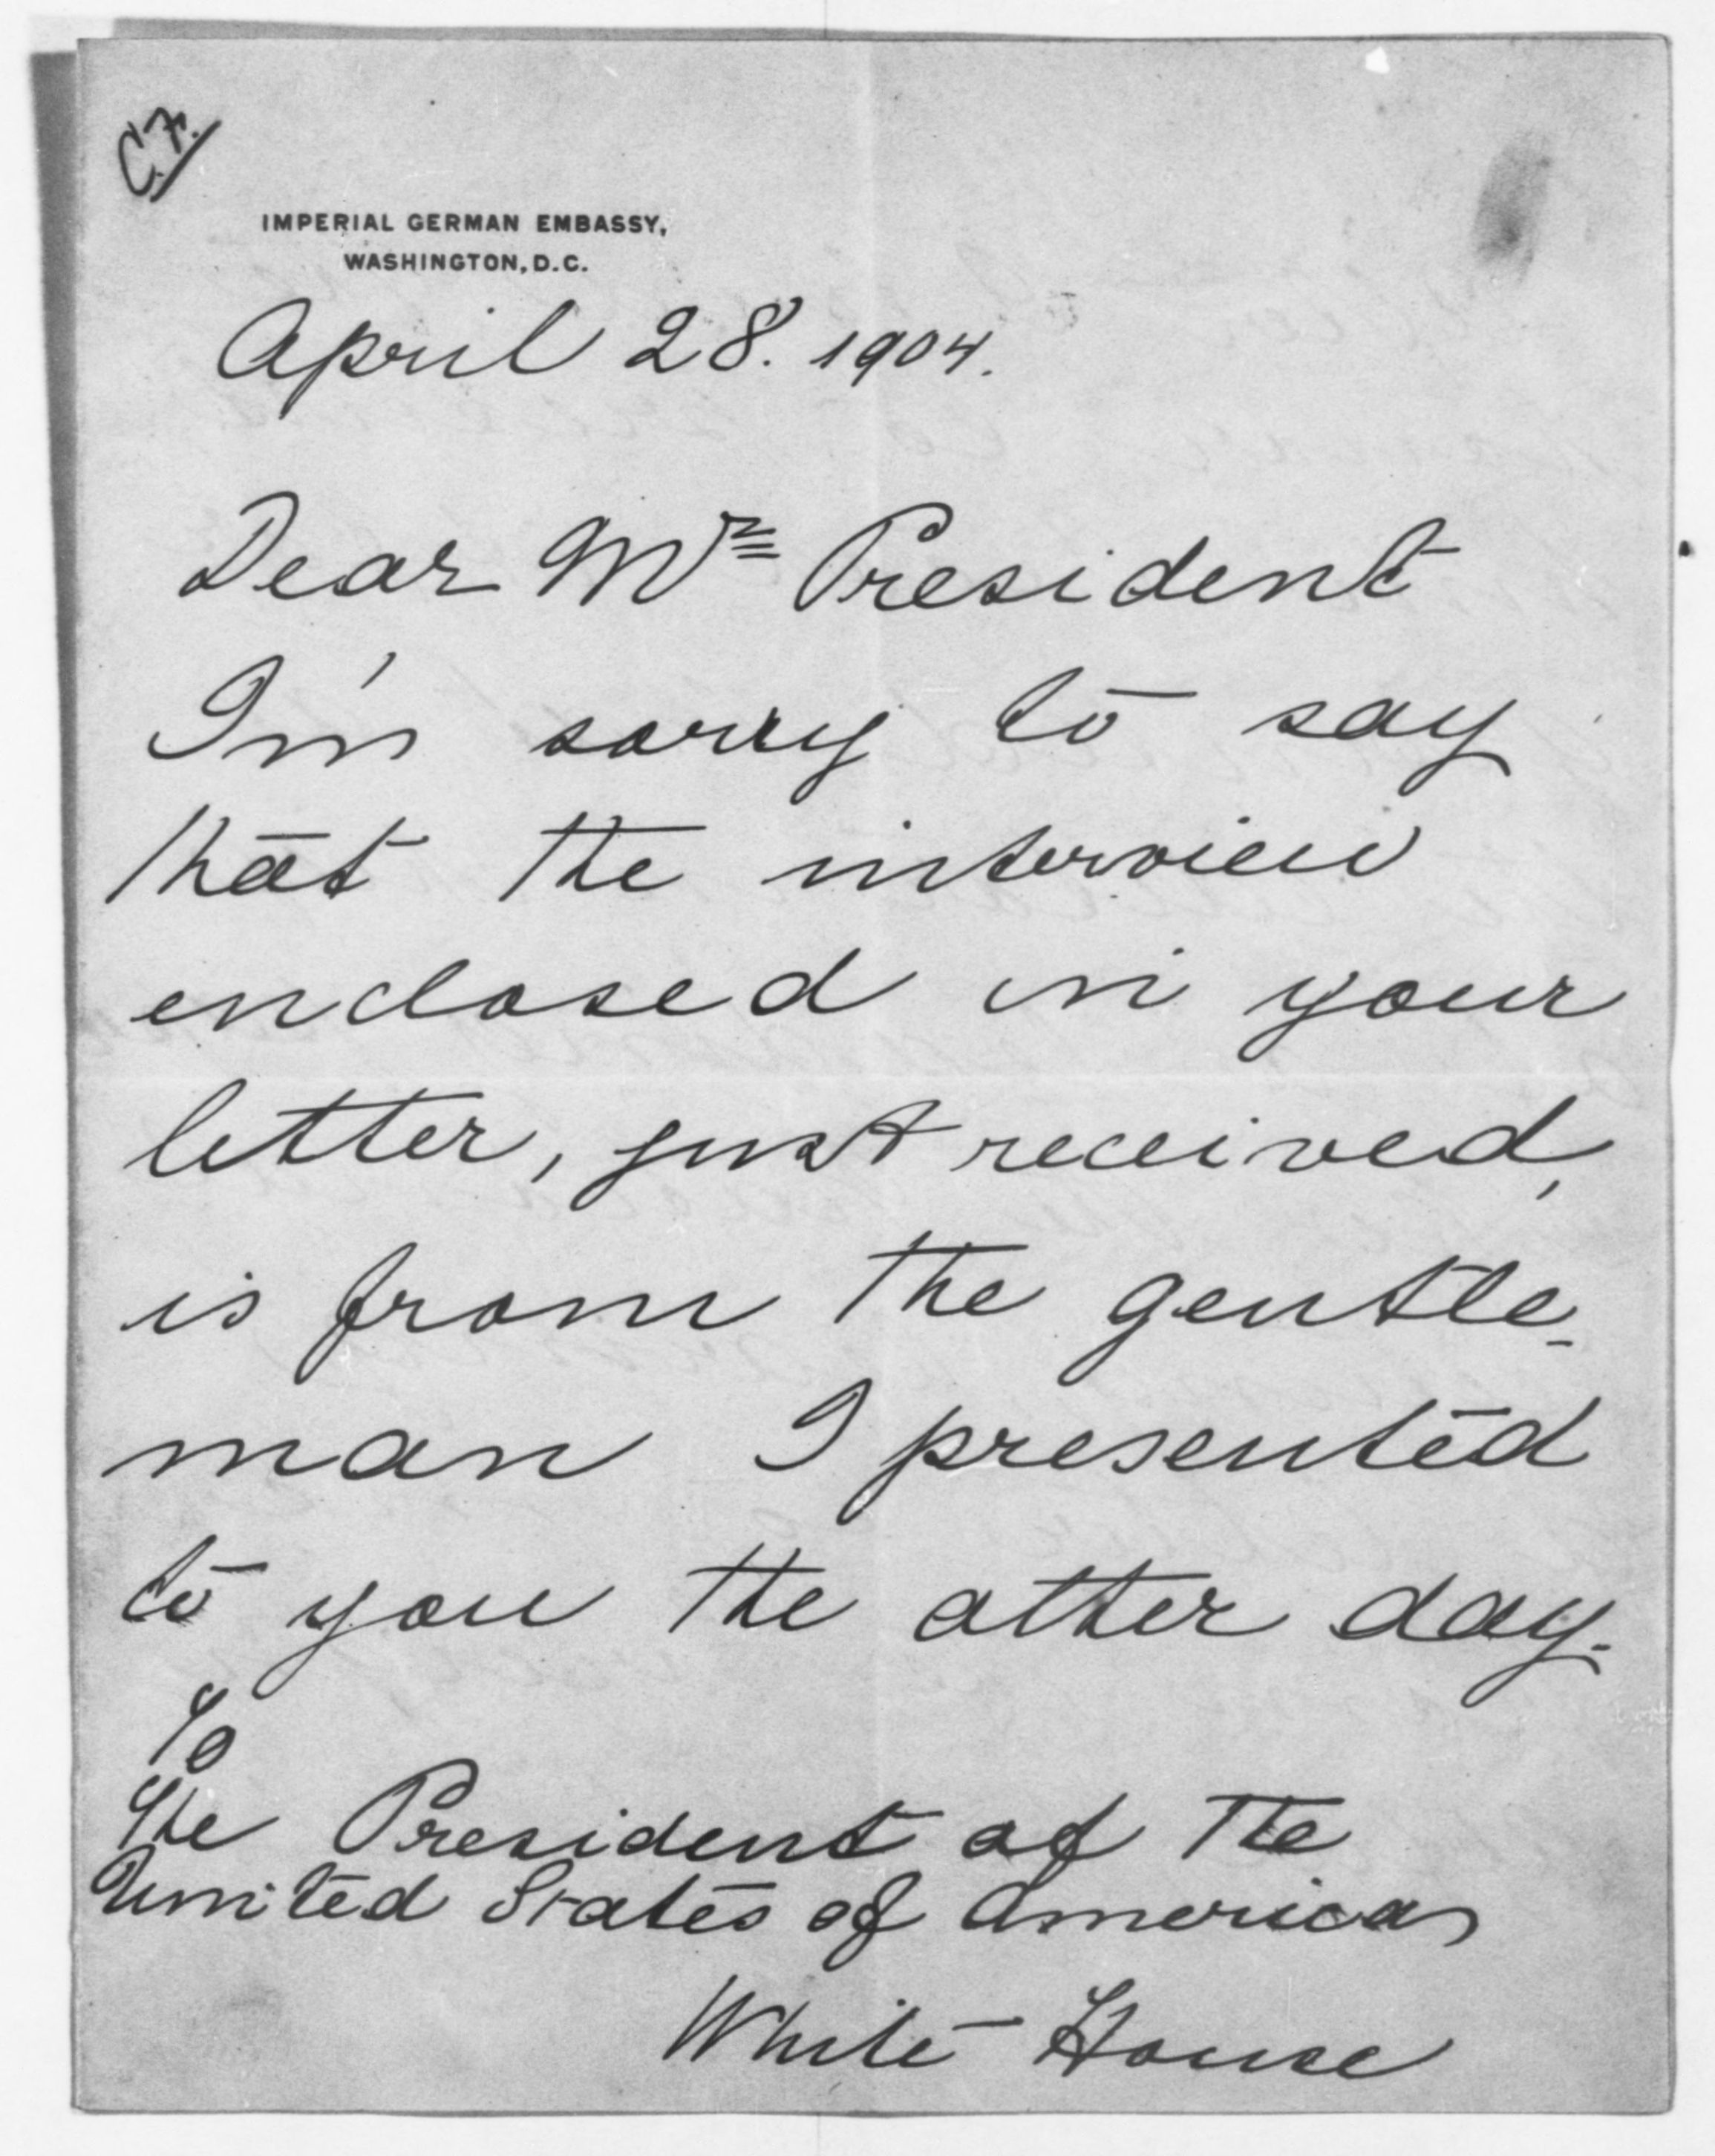 C.F.
IMPERIAL GERMAN EMBASSY,
WASHINGTON, D.C.
April 28. 1904.
Dear Mr President
I'm sorry to say
that the interview
enclosed in your
letter, just received,
is from the gentle-
man I presented
to you the other day.
To
the President of the
United States of America
White House